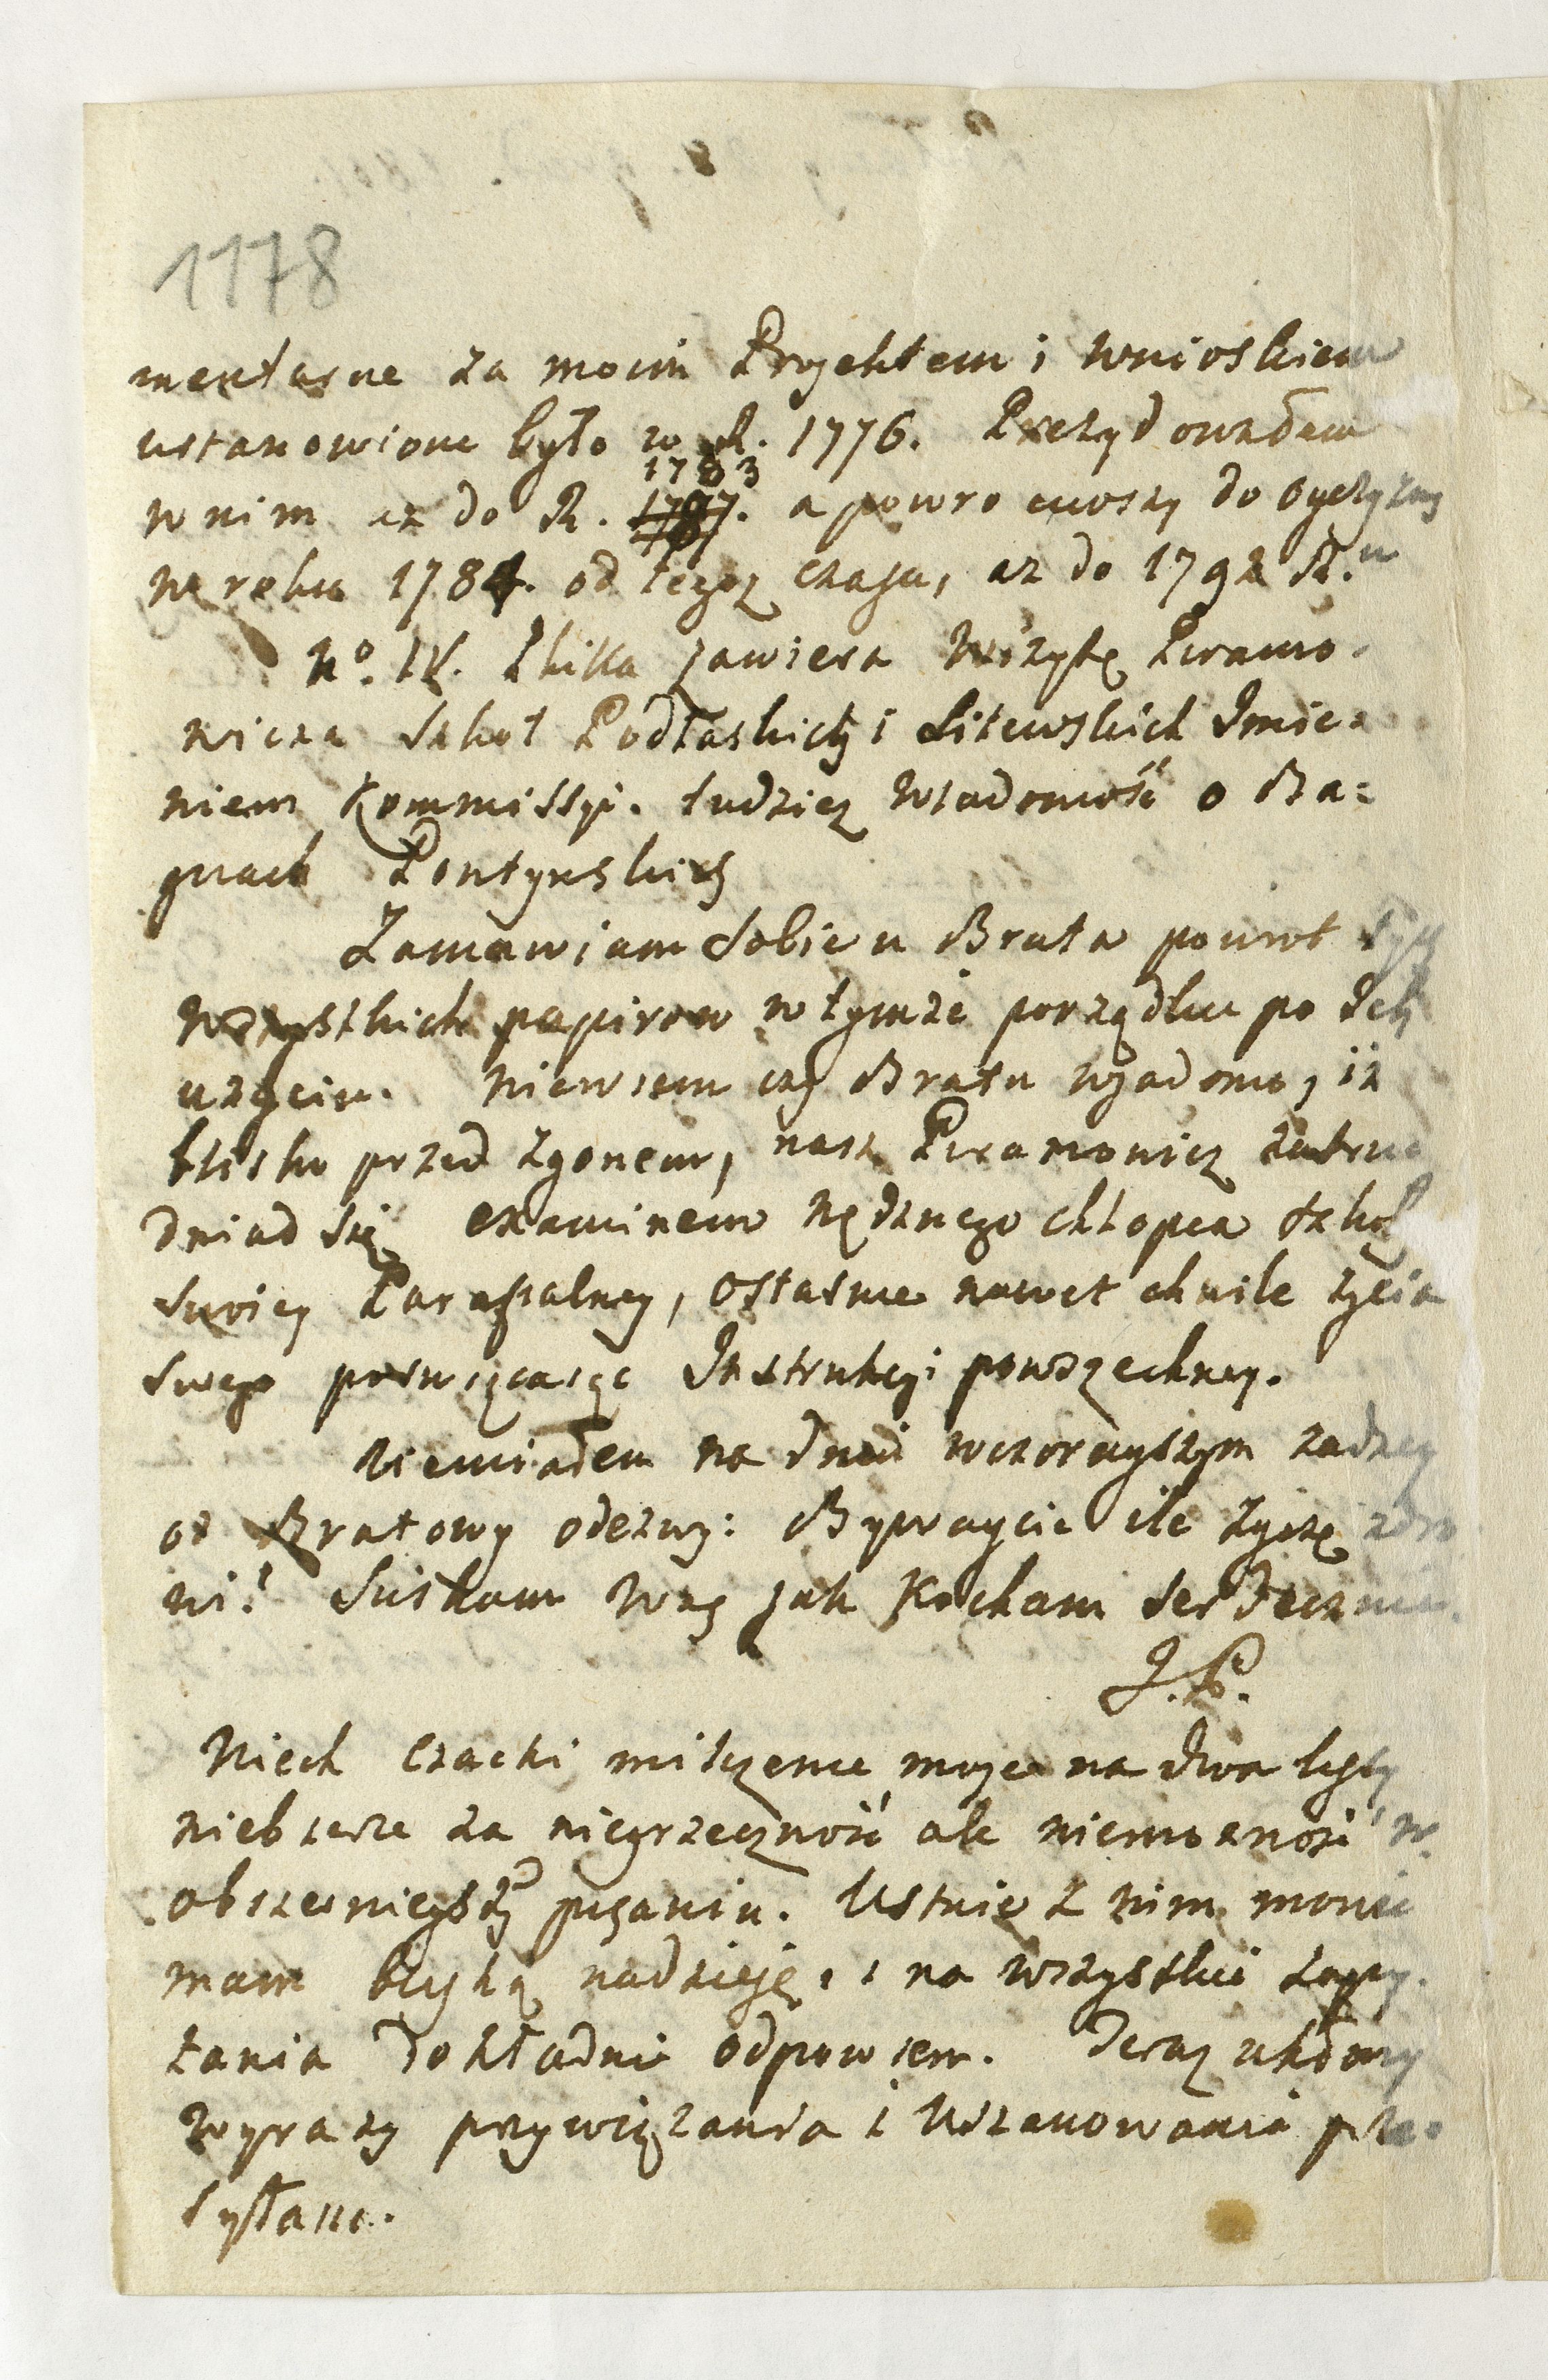 1178
mentarne za moim Projektem i wnioskiem
ustanowione było w R. 1776. Prezydowałem
w nim az do R. 1783 a powrociwszy do oyczyzny
w roku 1784. od tegoz czasu, az do 1792 R.u
No. IV. Plikka zawiera Wizytę Piramo-
wicza Szkoł Podlaskich i Litewskich Imie-
niem Kommissyi. tudziez Wiadomość o Ba=
gnach Pontynskich
Zamawiam sobie u Brata powrot tych
wszystkich papirow w tymże porządku po Ich
uzyciu. Niewiem czy Bratu wjadomo, iż
blisko przed zgonem, nasz Piramowicz zatru
dniał się examinem nędznego chłopca szkoły
swoiey Parafialney, ostatnie nawet chwile zycia
swego poswięcaiąc Instrukcyi powszechney.
Niemiałem na dniu wczorayszym zadney
od Bratowy odezwy: Bywaycie ile zyczę zdro
wi! Sciskam Was jak Kocham serdecznie.
J.P.
Niech Czacki milczenie moje na dwa listy
niebierze za niegrzeczność ale niemoznosć w
obszernieyszym pisaniu. Ustnie z nim mowić
mam bliską nadzieję, i na wszystkie zapy-
tania dokładnie odpowiem. Teraz ukłony
wyrazy przywiązania i uszanowania prze-
syłam.